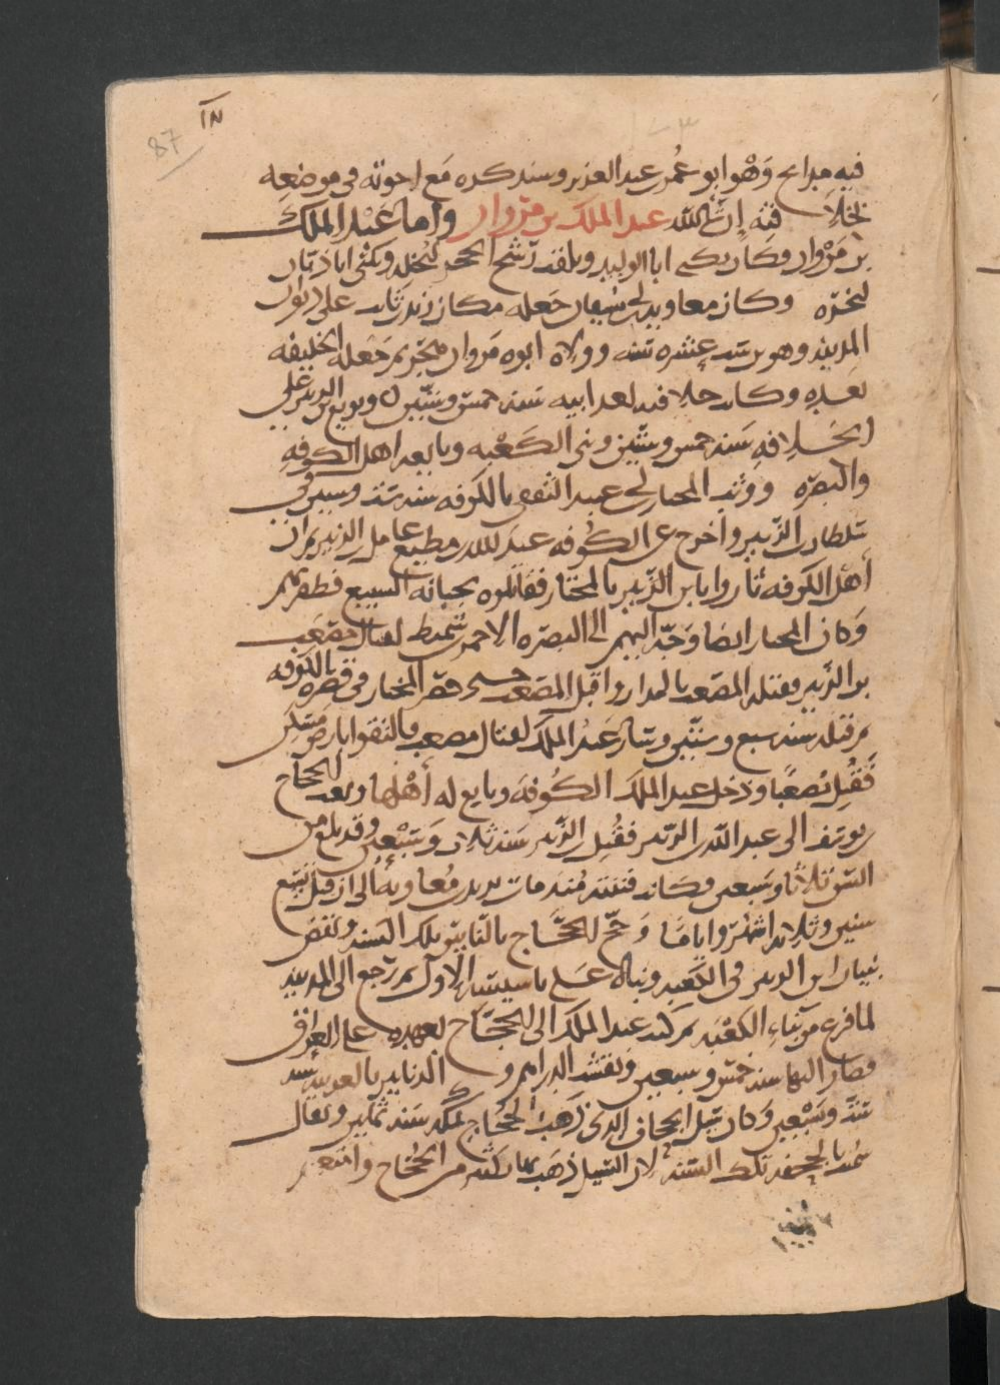 87
فيه مدايح وهو ابو عمر بن عبد العزيز وسنذكره مع اخوته في موضعه
خلافته ان شا الله عبد الملك بن مروان واما عبد الملك
بن مروان وكان يكنى ابا الوليد ويلقب رشح الحجر لبخله ويكنى ابا ذبان
لبخره وكان معاوية بن ابي سفيان جعله مكان زيد بن ثابت على ديوان
المدينة وهو بن ست عشره سنه وولاه ابوه مروان هجر ثم جعله الخليفه
بعده وكانت خلافته بعد ابيه سنه خمس وستين وبويع بن الزبير على
الخلافه سنه خمس وستين وبنى الكعبه وبايعه اهل الكوفه
والبصره ووثب المختار بن ابي عبيد الثقفي بالكوفه سنه ست وستين في
سلطان بن الزبير واخرج عن الكوفه عبد الله بن مطيع عامل بن الزبير ثم ان
اهل الكوفه ثاروا بابن الزبير بالمختار فقاتلوه بجبانة السبيع فظفر بهم
وكان المختار ايضا وجه اليهم الى البصره الاحمر بن شميط لقتال مصعب
بن الزبير فقتله المصعب بالمدار واقبل المصعب حتى حصر المختار في قصره بالكوفه
ثم قتله سنه سبع وستين وسار عبد الملك لقتال مصعب فالتقوا بارض مسكن
فقتل مصعبا ودخل عبد الملك الكوفه وبايع له اهلها وبعث الحجاج
بن يوسف الى عبد الله بن الزبير فقتل بن الزبير سنه ثلاث وسبعين وقد بلغ من
السن ثلاثا وسبعين وكانت فتنته منذ مات يزيد بن معاويه الى ان قتل تسع
سنين وثلاثه اشهر واياما وحج الحجاج بالناس تلك السنه ونقض
بنيان ابن الزبير في الكعبه وبناه على تاسيسه الاول ثم رجع الى المدينه
لما فرغ من بناء الكعبه ثم كتب عبد الملك الى الحجاج بعهده على العراق
فصار اليها سنه خمس وسبعين ونقشت الدراهم و الدنانير بالعربيه سنه
ست وسبعين وكان سيل الجحاف الذي ذهب بالحجاج بمكه سنه ثمانين ويقال
سمت بالجحفه تلك السنه لان السيل ذهب بمال كثير من الحجاج وامتعتهم